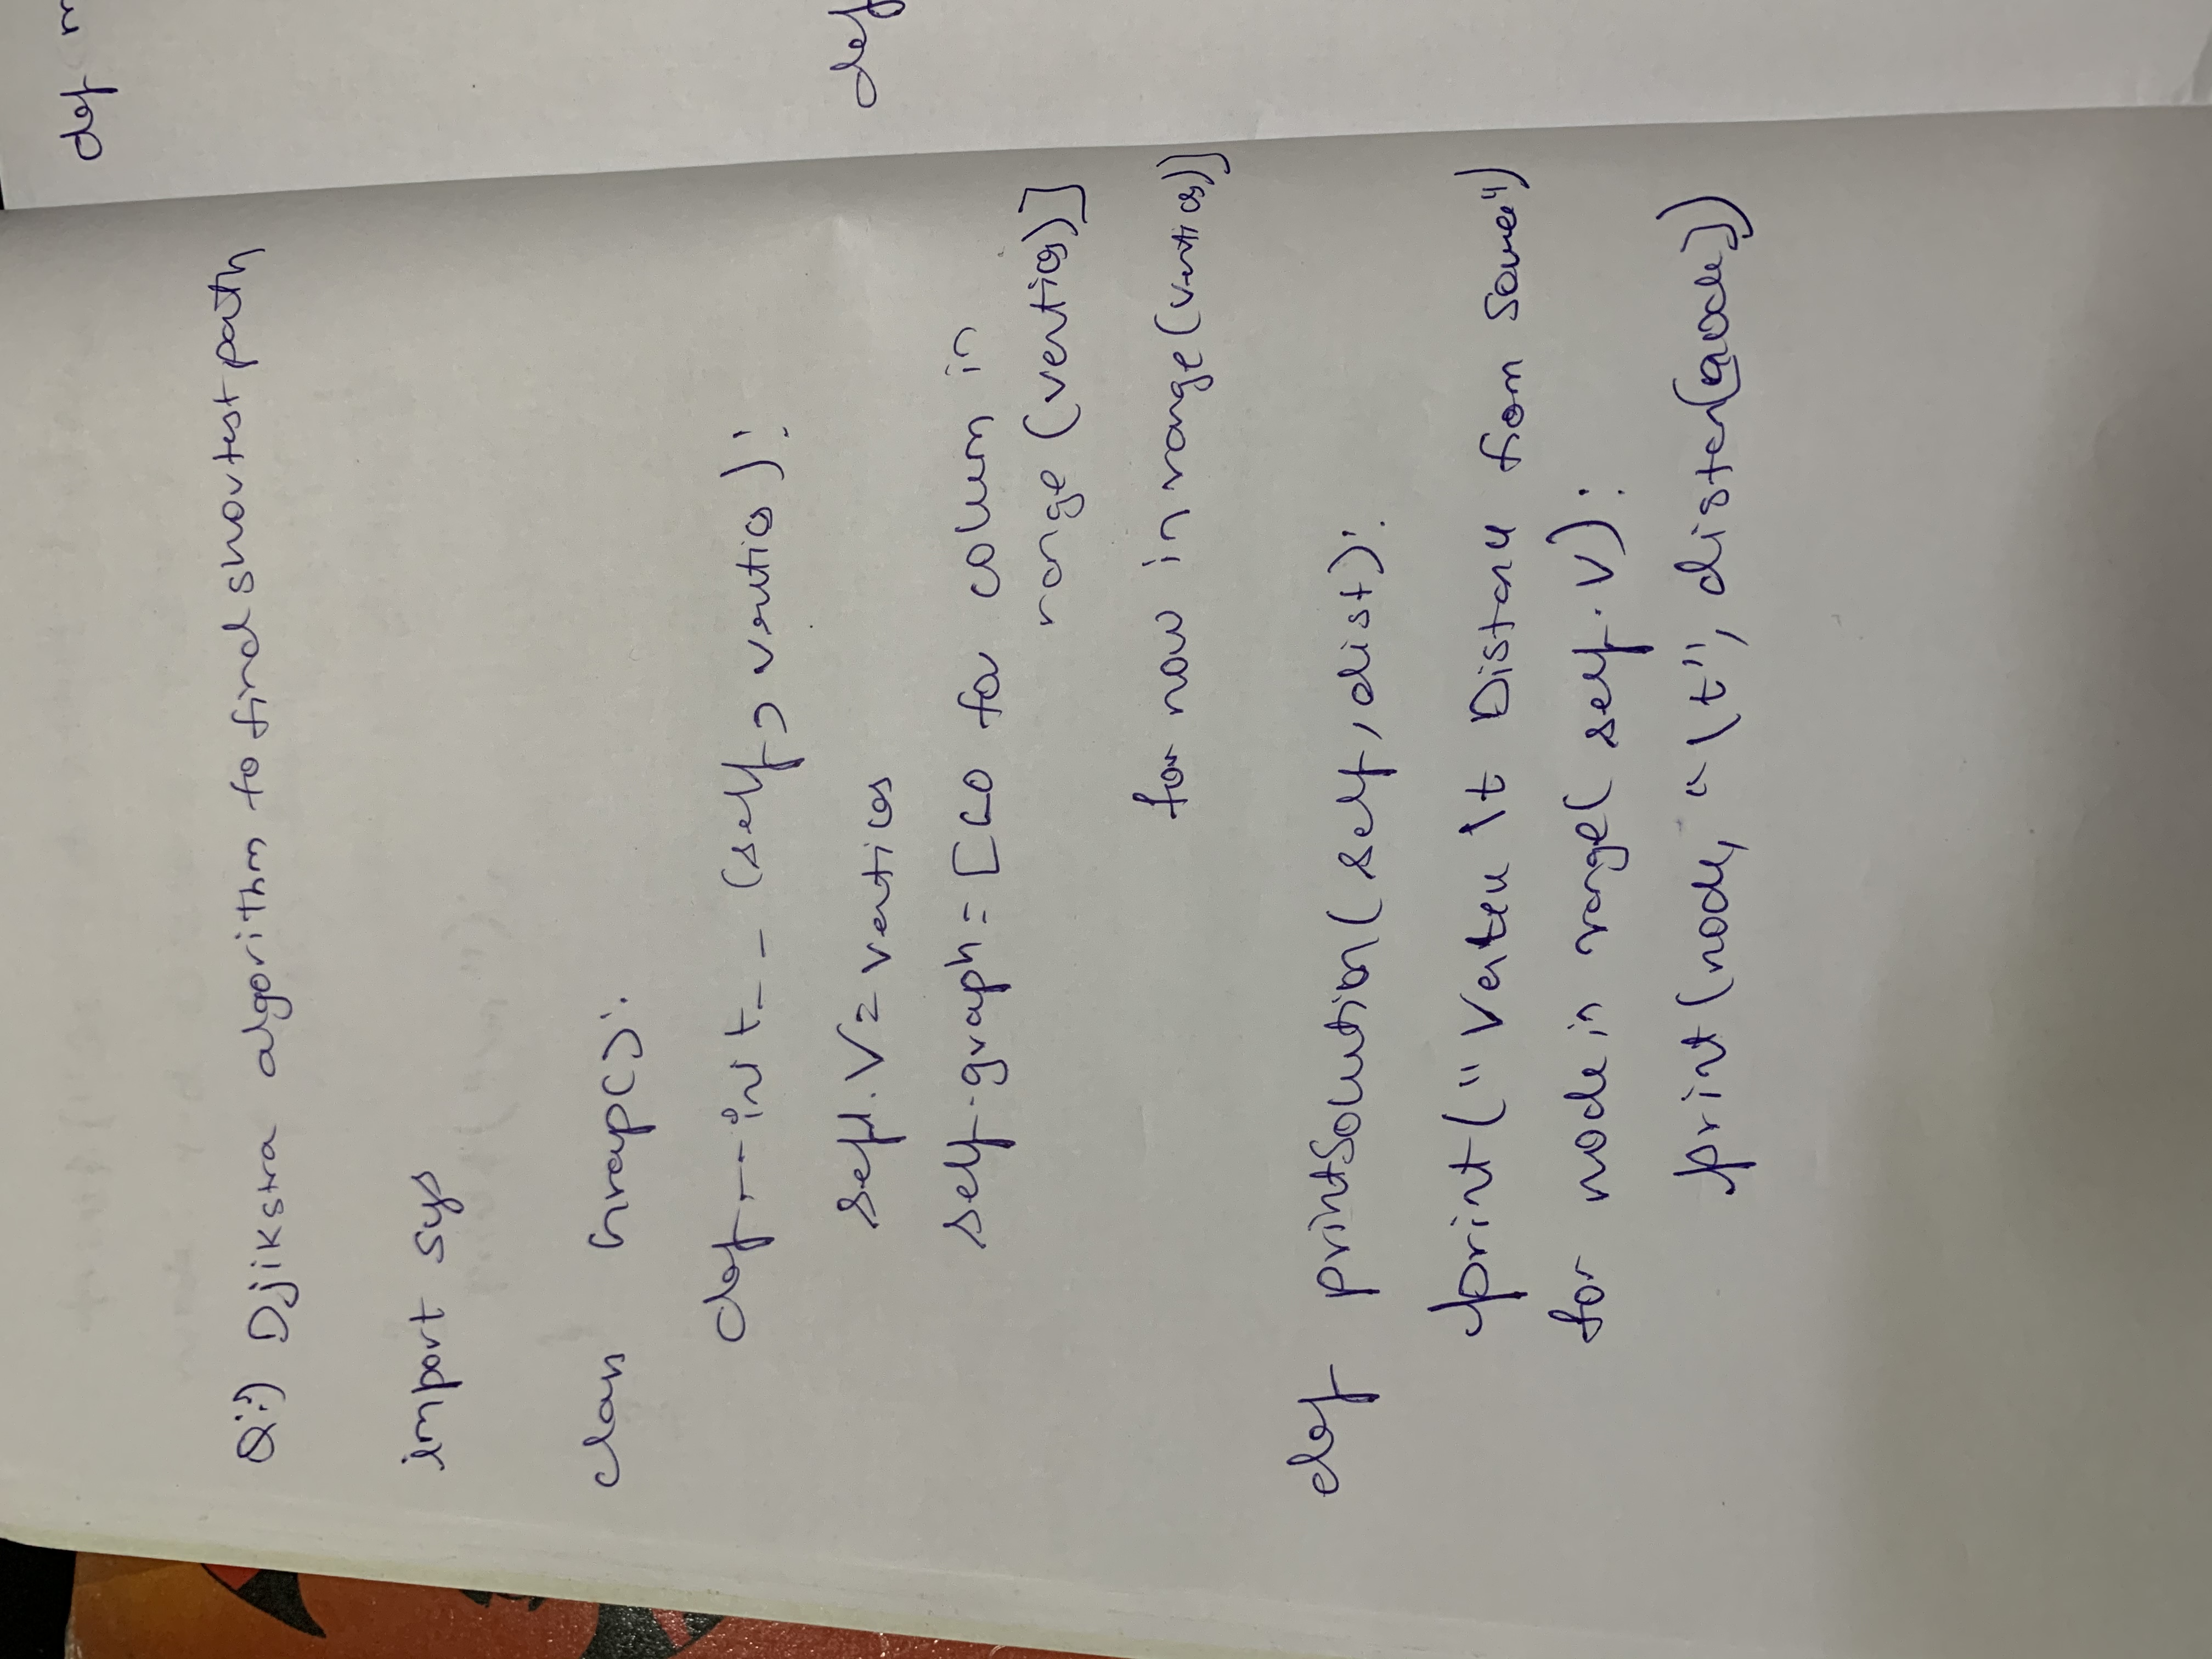 Q:) Djikstra algorithm to find shortest path
import sys
class Grap():
def __init__ (self, vertices):
sefl.V = vertices
self.graph = [[0 for colum in
range (vertices)]
for now in range (vertices)]
def printSolution( self, dist):
print(" Vertex \t Distance from Source")
for node in range( self.V):
print (node, "\t", disten[node])
def m
def